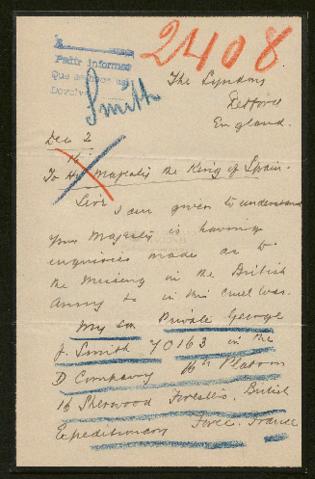 2408
Pedir informes
Smith
The Lyndons
England.
Dec 2
16
To His Majestis the King of Spain.
Sir
I am given to understand
Your Majestis is having
enquiries made as to
the Missing in the British
Army &c in this cruel war.
My son Private George
J. Smith 70163 in the
D Company 16th Platoon
16 Sherwood Foresters. British
Expeditionary Force. France